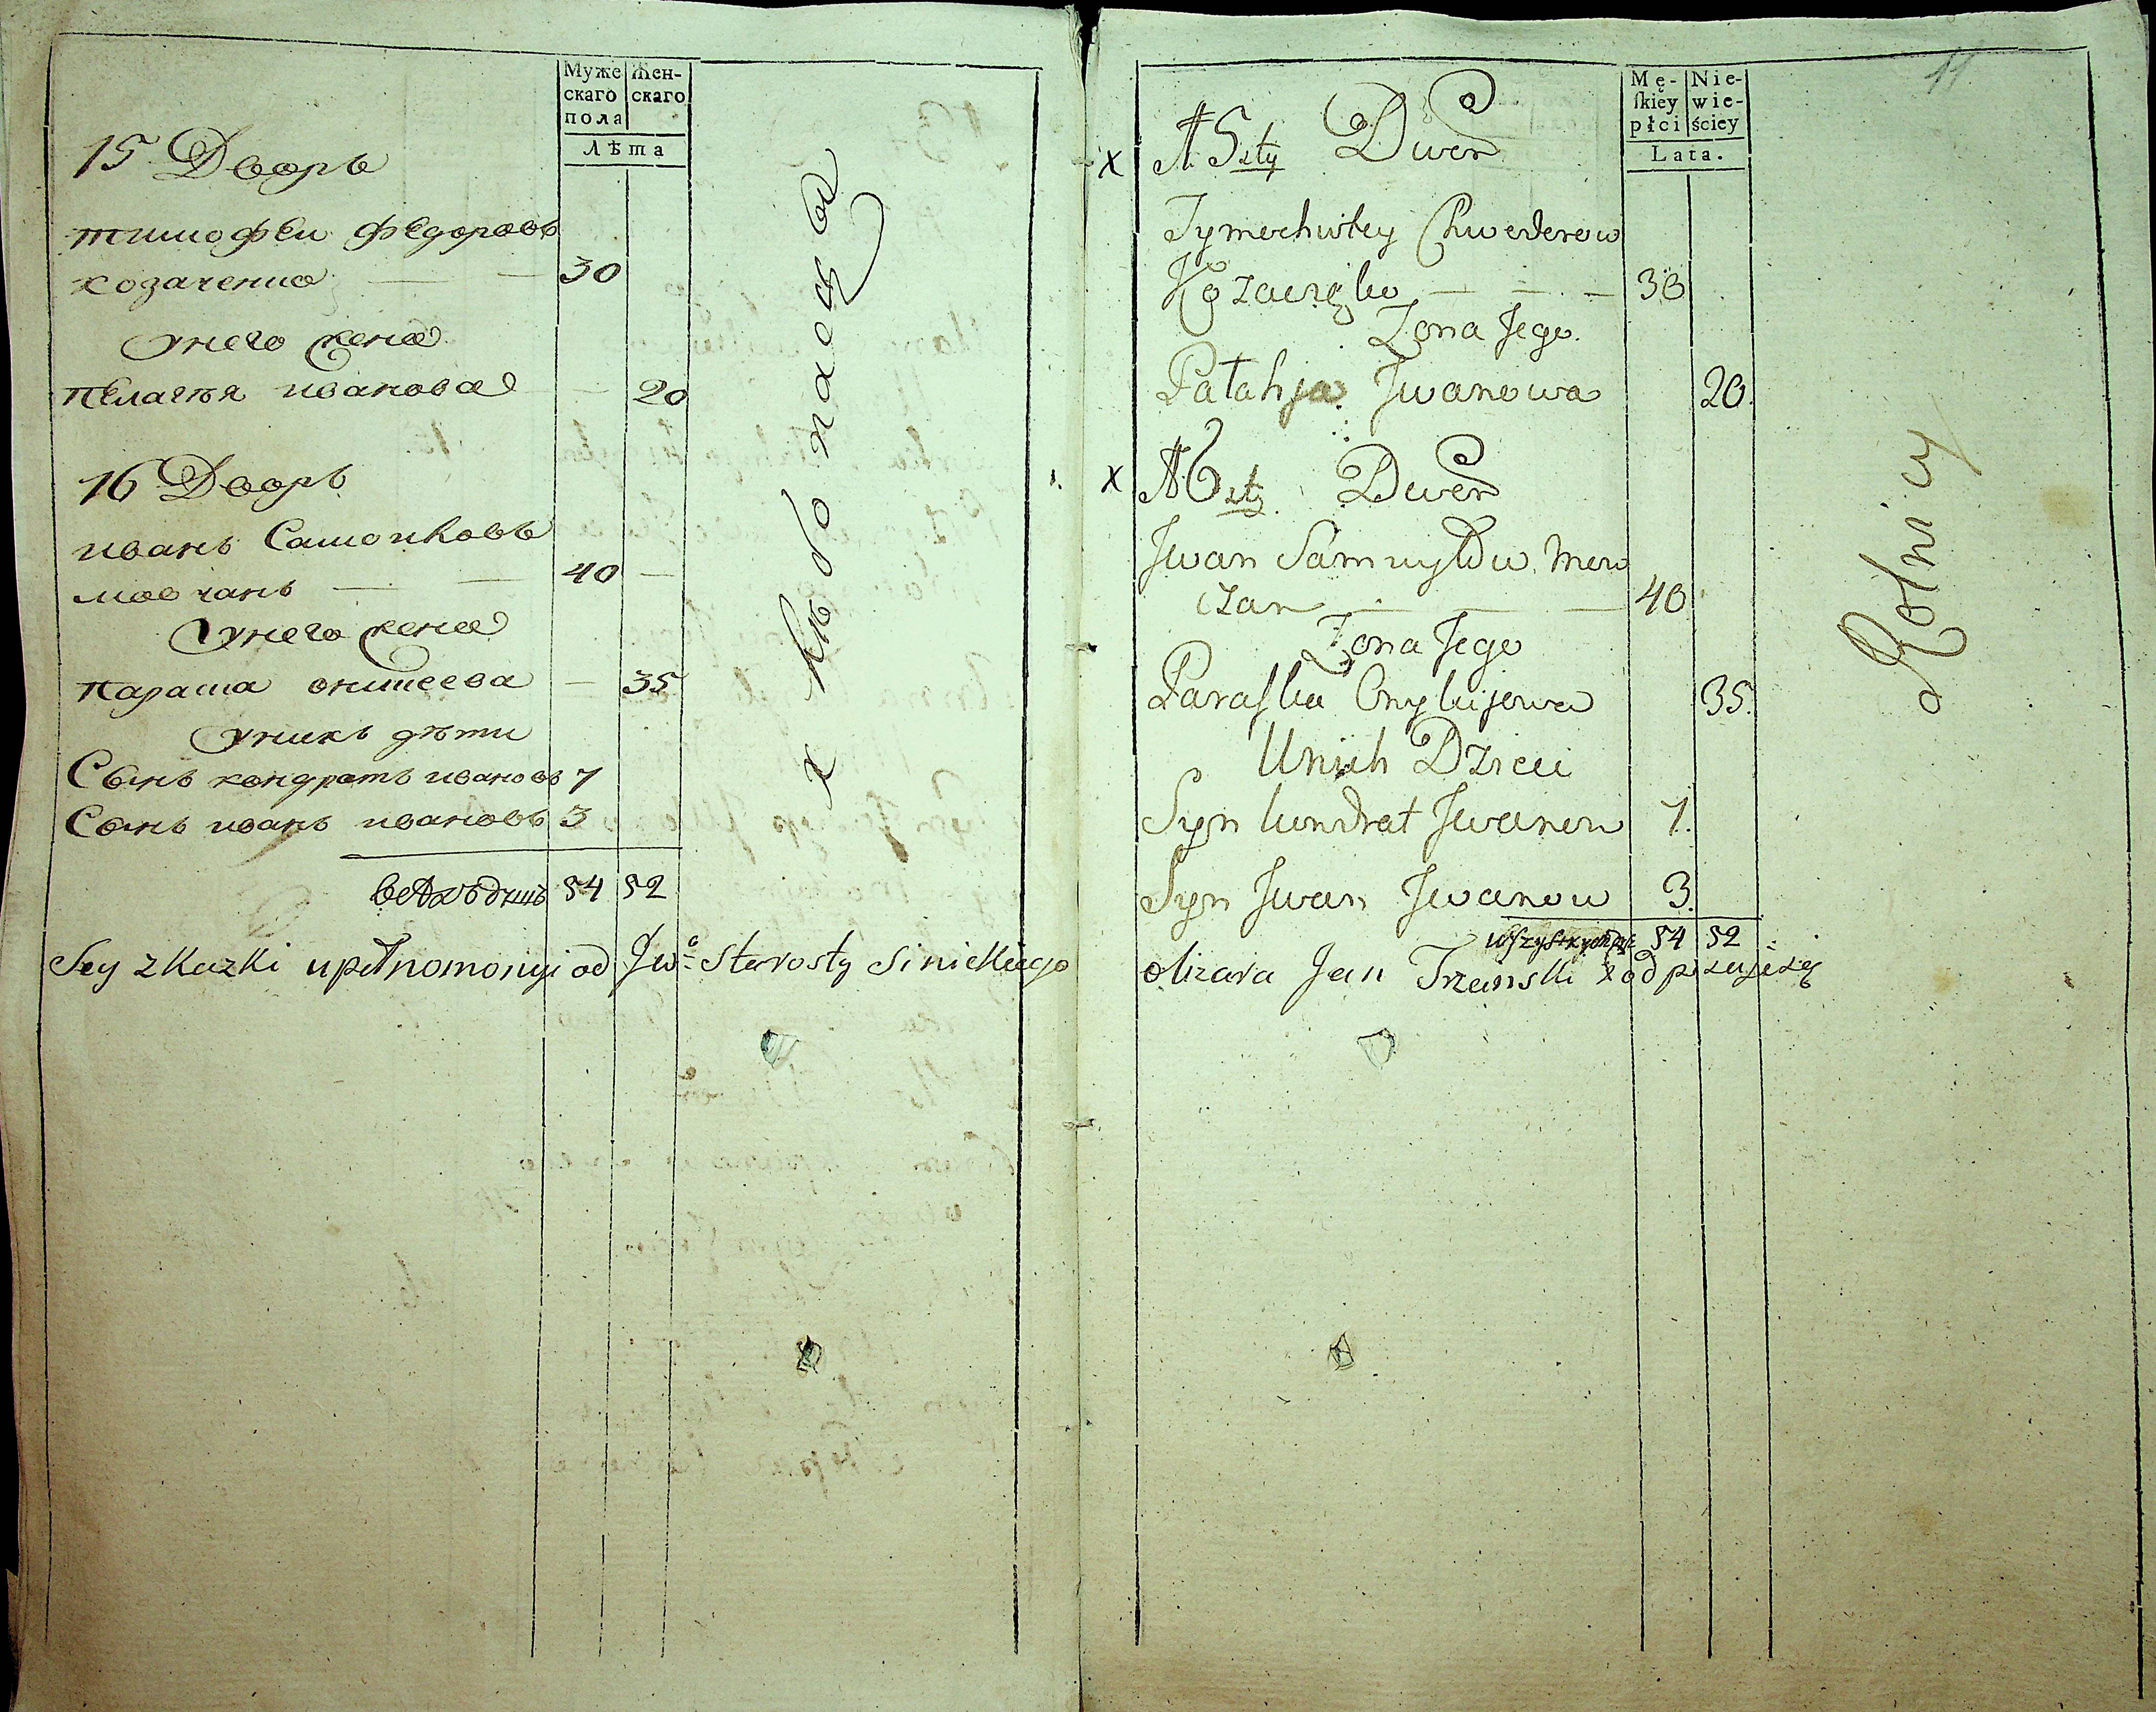 Муже
скаго
пола
Жен-
скаго
Лѣта
15 Дворъ
тимофеи федоровъ
козаченко — — 30
у него жена
пелагѣя иванова — 20
16 Дворъ
иванъ Самоиловъ
мовчанъ — — 40 —
у него жена
параска онисеева — 35
у нихъ дѣти
Сынъ кондратъ ивановъ 7
Сынъ иванъ ивановъ 3
всѣхъ душъ 54 52
хлѣбопаецъ
Sey zkazki upełnomoniy od Jwo Starosty Sinickiego
11
Mę-
skiey
płci
Nie-
wie-
ściey
Lata.
x 15sty Dwor
Tymochwiey Chwederow
Kozaczęko — — — 30
Zona Jego.
Patahja Jwanowa 20.
x 16sty Dwor
Jwan Samuyłow Mow
czan — — — 40
Zona Jego
Paraska Onykijowa 35.
U nich Dzieci
Syn kondrat Jwanow 7.
Syn Jwan Jwanow 3.
wszystkych dusz 54 52
olizara Jan Trzeinski podpisujesię
Rolnicy